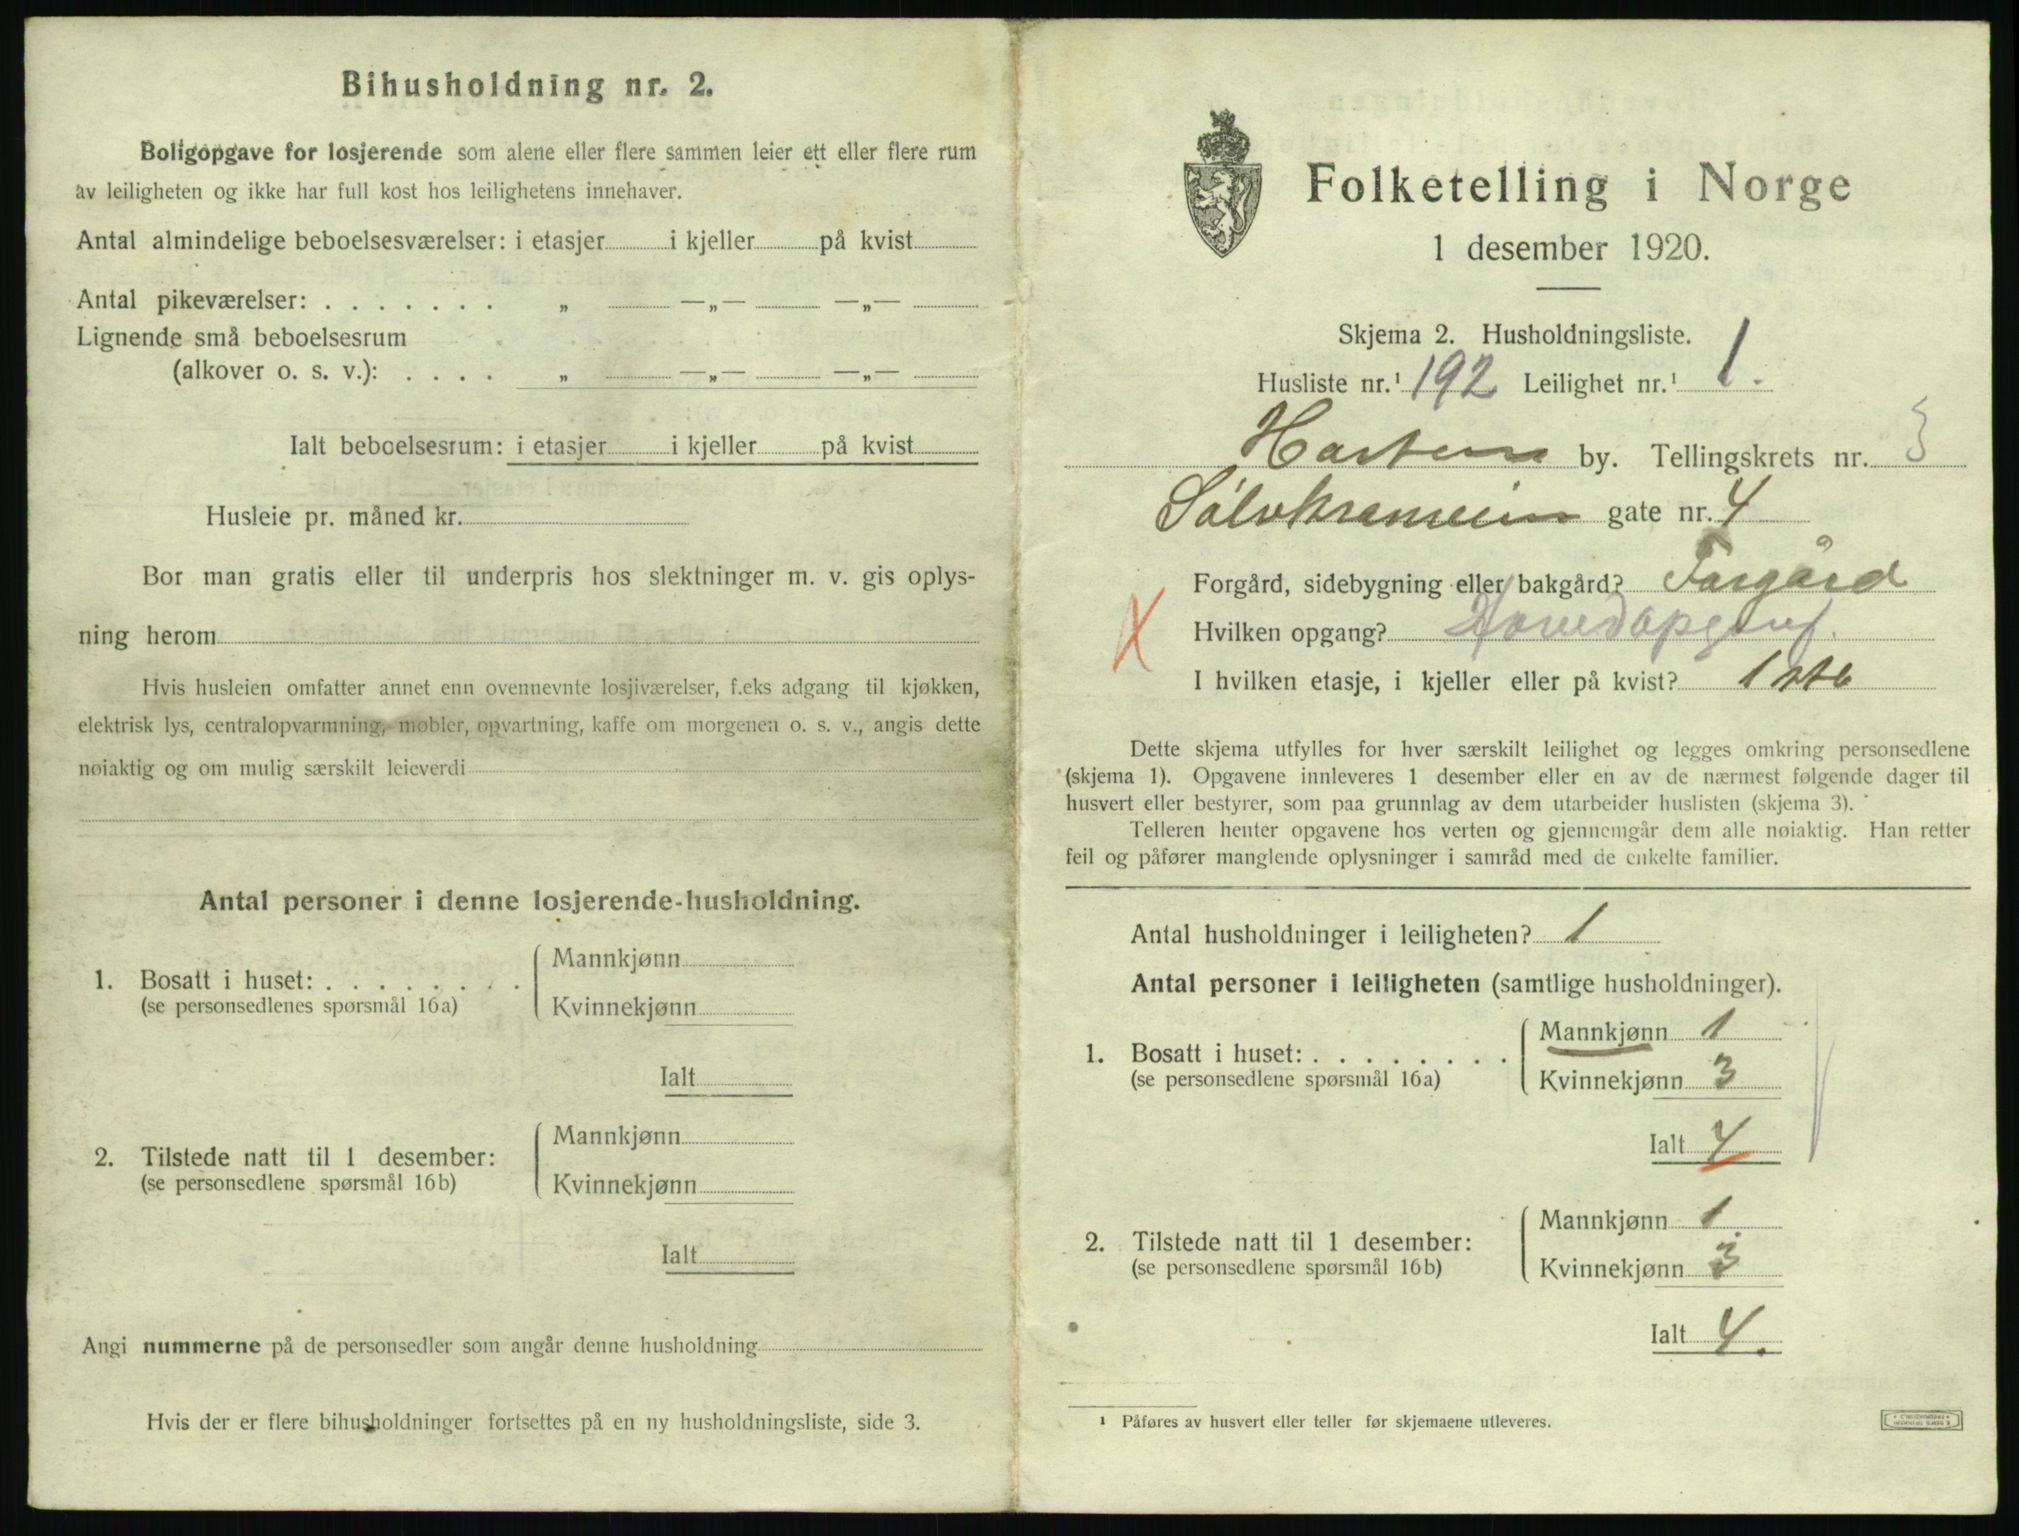 Bihusholdning nr. 2.
Boligopgave for losjerende som alene eller flere sammen leier ett eller flere rum
av leiligheten og ikke har full kost hos leilighetens innehaver.
Antal almindelige beboelsesværelser: i etasjer i kjeller på kvist
Antal pikeværelser: . . . . . . . „ —„— —„—
Lignende små beboelsesrum
(alkover o. s. v.): . . . . „ —„— —„—
Ialt beboelsesrum: i etasjer i kjeller på kvist
Husleie pr. måned kr.
Bor man gratis eller til underpris hos slektninger m. v. gis oplys-
ning herom
Hvis husleien omfatter annet enn ovennevnte losjiværelser, f.eks adgang til kjøkken,
elektrisk lys, centralopvarmning, møbler, opvartning, kaffe om morgenen o. s. v., angis dette
nøiaktig og om mulig særskilt leieverdi
Antal personer i denne losjerende-husholdning.
1. Bosatt i huset: . . . . . . . .
(se personsedlenes spørsmål 16a)
Mannkjønn
Kvinnekjønn
Ialt
2. Tilstede natt til 1 desember:
(se personsedlene spørsmål 16b)
Mannkjønn
Kvinnekjønn
Ialt
Angi nummerne på de personsedler som angår denne husholdning
Hvis der er flere bihusholdninger fortsettes på en ny husholdningsliste, side 3.
Folketelling i Norge
1 desember 1920.
Skjema 2. Husholdningsliste.
Husliste nr.¹ 192 Leilighet nr.¹ 1.
by. Tellingskrets nr. 3
gate nr. 4
Forgård, sidebygning eller bakgård? Forgård
Hvilken opgang? Hovedopgang.
I hvilken etasje, i kjeller eller på kvist? 1ste
Dette skjema utfylles for hver særskilt leilighet og legges omkring personsedlene
(skjema 1). Opgavene innleveres 1 desember eller en av de nærmest følgende dager til
husvert eller bestyrer, som paa grunnlag av dem utarbeider huslisten (skjema 3).
Telleren henter opgavene hos verten og gjennemgår dem alle nøiaktig. Han retter
feil og påfører manglende oplysninger i samråd med de enkelte familier.
Antal husholdninger i leiligheten? 1
Antal personer i leiligheten (samtlige husholdninger).
1. Bosatt i huset: . . . . . . . .
(se personsedlene spørsmål 16a)
Mannkjønn 1
Kvinnekjønn 3
Ialt 4
2. Tilstede natt til 1 desember:
(se personsedlene spørsmål 16b)
Mannkjønn 1
Kvinnekjønn 3
Ialt 4.
¹ Påføres av husvert eller teller før skjemaene utleveres.